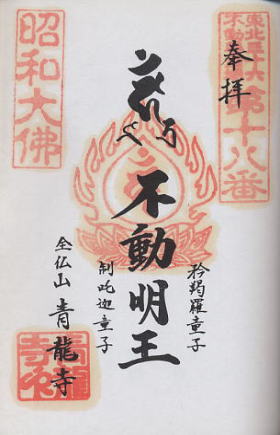 東北三十六
不動尊
第十八番
奉拝
矜羯羅童子
不動明王
制吒迦童子
全仏山 青龍寺
昭和大佛
青龍
寺印